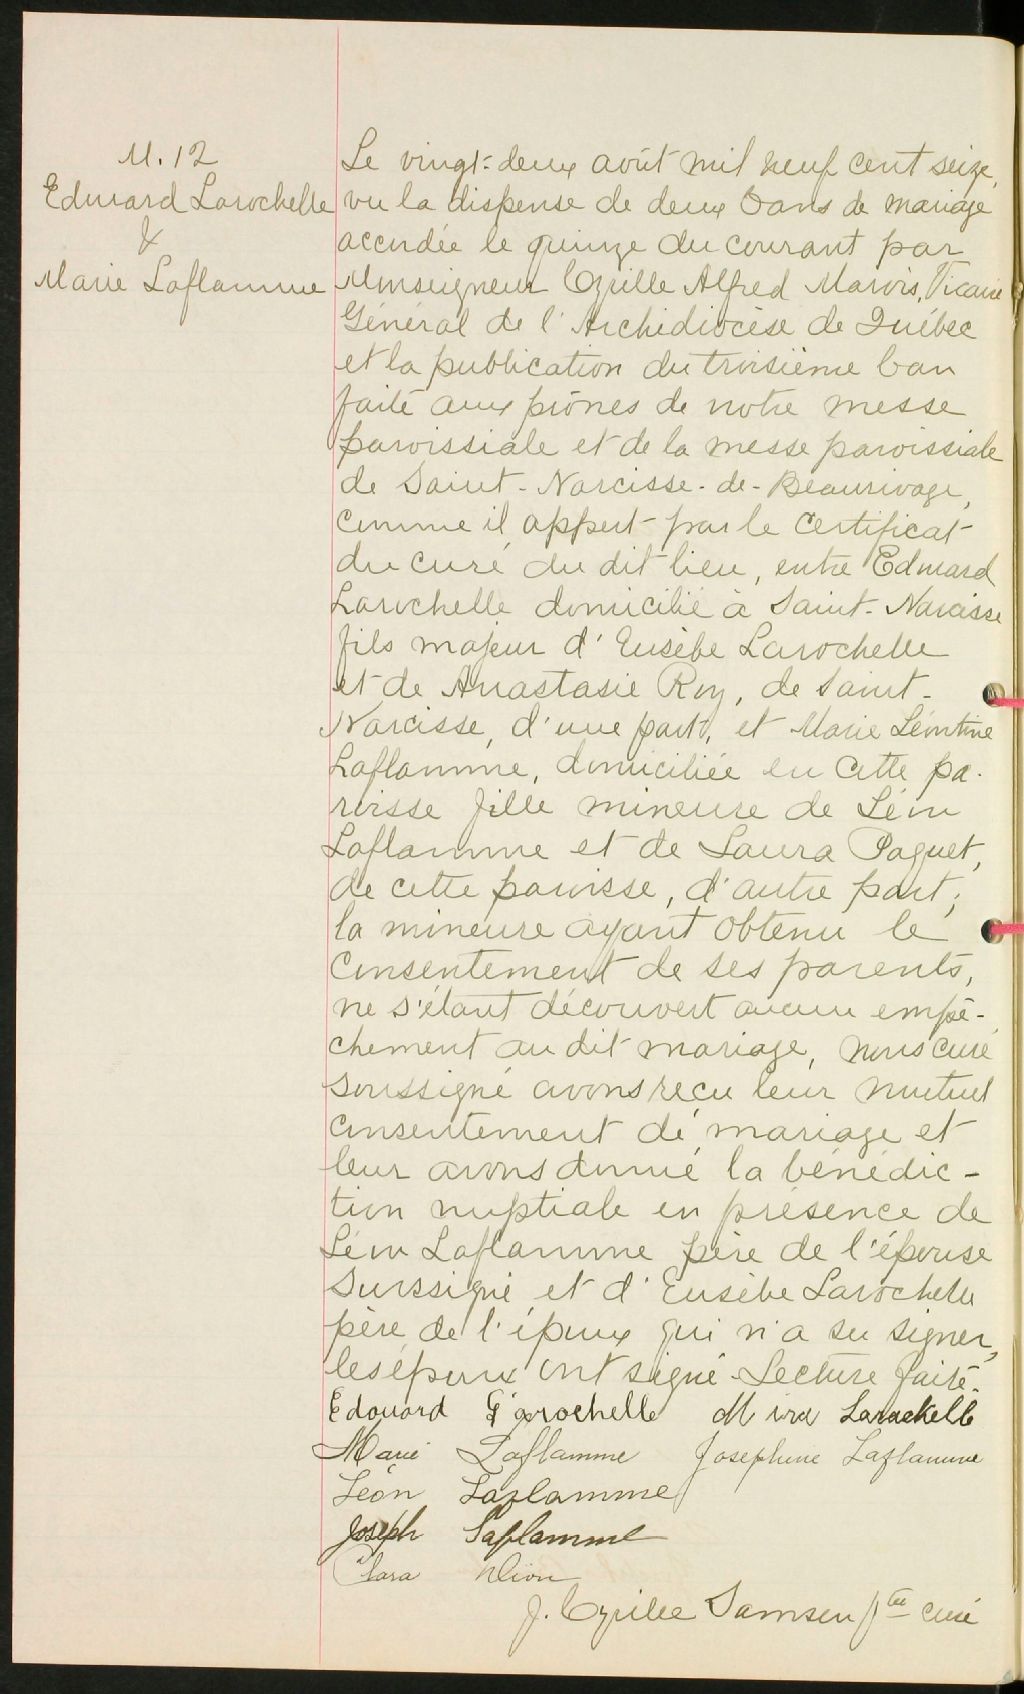 M. 12
Edouard Larochelle
&
Marie Laflamme
Le vingt-deux août mil neuf cent seize,
vu la dispense de deux bans de mariage
accordée le quinze du courant par
Monseigneur Cyrille Alfred Marois, Vicaire
Général de l'Archidiocèse de Québec
et la publication du troisième ban
faite aux prônes de notre messe
paroissiale et de la messe paroissiale
de Saint-Narcisse-de-Beaurivage,
comme il appert par le certificat
du curé du dit lieu, entre Edouard
Larochelle domicilié à Saint-Narcisse
fils majeur d'Eusèbe Larochelle
et de Anastasie Roy, de Saint-
Narcisse, d'une part, et Marie Léontine
Laflamme, domiciliée en cette pa-
roisse fille mineure de Léon
Laflamme et de Laura Paquet,
de cette paroisse, d'autre part;
la mineure ayant obtenu le
consentement de ses parents,
ne s'étant découvert aucun empê-
chement au dit mariage, nous curé
soussigné avons reçu leur mutuel
consentement de mariage et
leur avons donné la bénédic-
tion nuptiale en présence de
Léon Laflamme père de l'épouse
soussigné et d'Eusèbe Larochelle
père de l'époux qui n'a su signer,
les époux ont signé. Lecture faite.
Edouard Larochelle Mira Larochelle
Marie Laflamme Josephine Laflamme
Léon Laflamme
Joseph Laflamme
Clara Dion
J. Cyrille Samson ptre curé